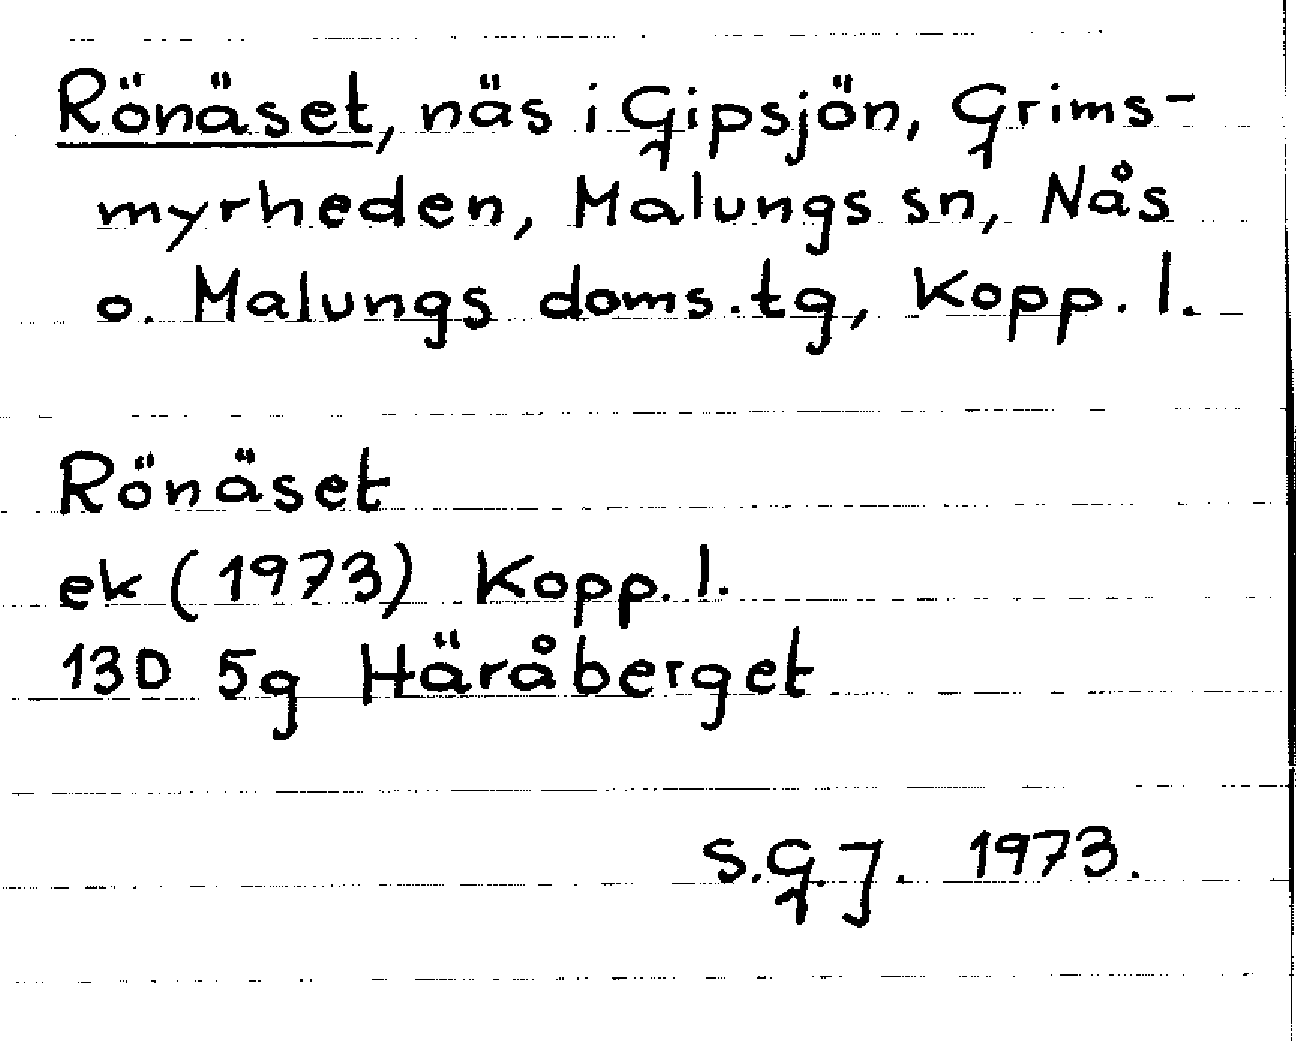 Rönäset, näs i Gipsjön, Grims-
myrheden, Malungs sn, Nås
o. Malungs doms.tg, Kopp. l.
Rönäset
ek (1973) Kopp. l.
13D 5g Häråberget
S.G.J. 1973.